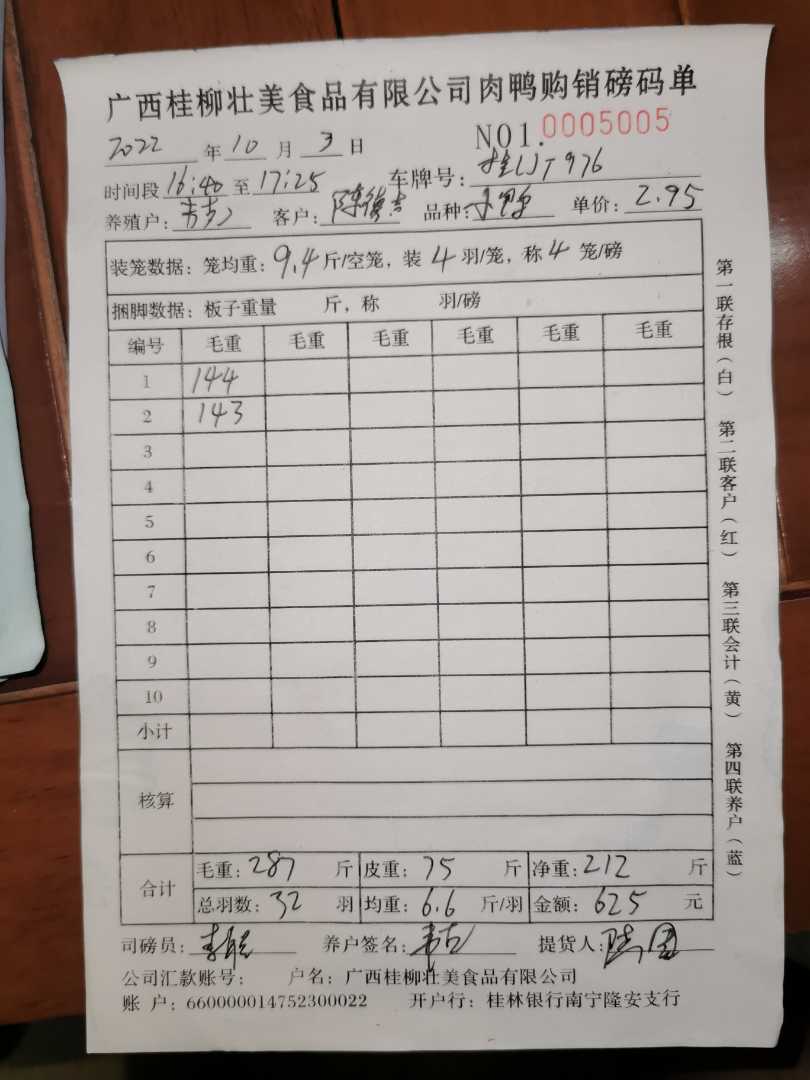 广西桂柳壮美食品有限公司肉鸭购销磅码单
2022年10月3日 NO1.0005005
时间段16:40至17:25 车牌号:桂LJT976
养殖户: 客户:陈德吉 品种: 单价:2.95
装笼数据:笼均重:9.4斤/空笼,装4羽/笼,称4笼/磅
捆脚数据:板子重量 斤,称 羽/磅
编号 毛重 毛重 毛重 毛重 毛重 毛重
1 144
2 143
3
4
5
6
7
8
9
10
小计
核算
合计 毛重:287斤 皮重:75斤 净重:212斤
总羽数:32羽 均重:6.6斤/羽 金额:625元
司磅员: 养户签名: 提货人:
公司汇款账号: 户名:广西桂柳壮美食品有限公司
账 户:660000014752300022 开户行:桂林银行南宁隆安支行
第一联存根(白) 第二联客户(红) 第三联会计(黄) 第四联养户(蓝)